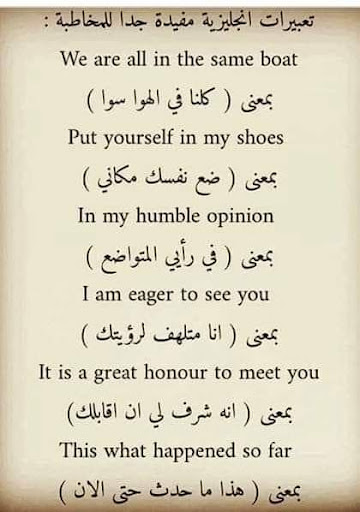 تعبيرات انجليزية مفيدة جدا للمخاطبة :
We are all in the same boat
بمعنى ( كلنا في الهوا سوا )
Put yourself in my shoes
بمعنى ( ضع نفسك مكاني )
In my humble opinion
بمعنى ( في رأيي المتواضع )
I am eager to see you
بمعنى ( انا متلهف لرؤيتك )
It is a great honour to meet you
بمعنى ( انه شرف لي ان اقابلك)
This what happened so far
بمعنى ( هذا ما حدث حتى الان )